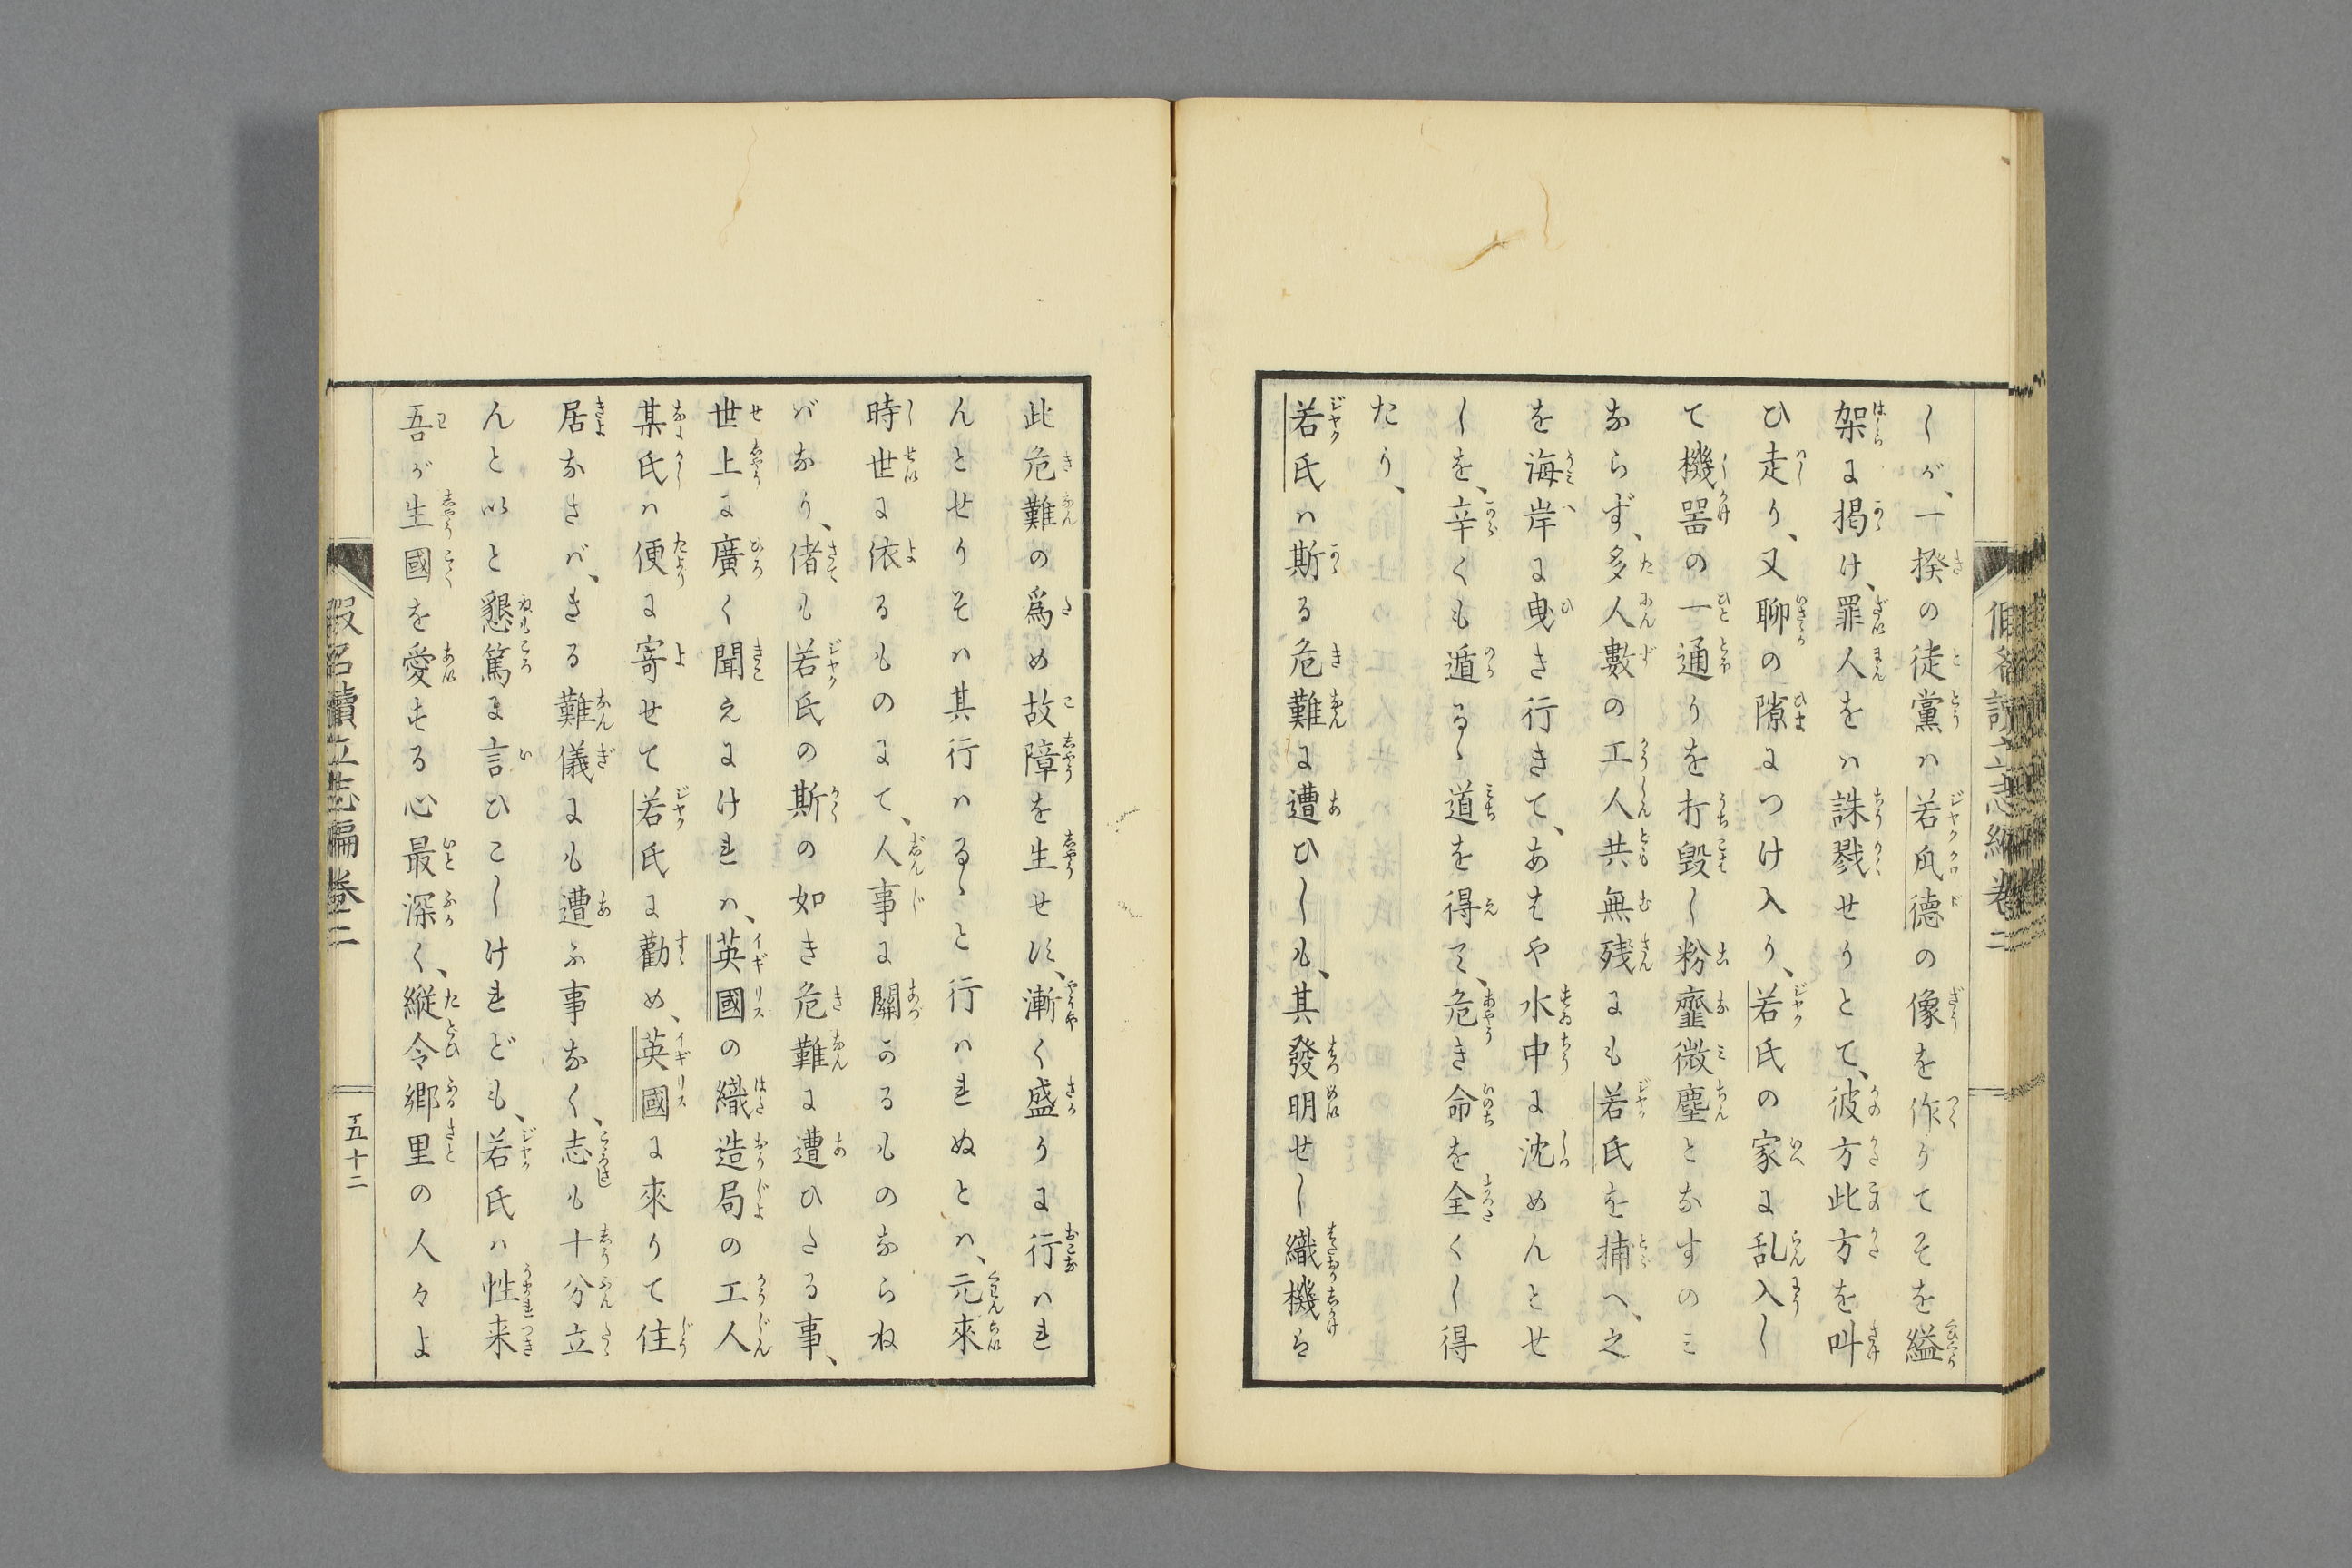 しが、一揆の徒黨ハ若瓜德の像を作りてそを縊
架に掲け、罪人をハ誅戮せりとて、彼方此方を叫
ひ走り、又聊の隙につけ入り、若氏の家に乱入し
て機噐の一通りを打毀し粉韲微塵となすのミ
ならず、多人數の工人共無残にも若氏を捕へ、之
を海岸に曳き行きて、あはや水中に沈めんとせ
しを、辛くも遁るゝ道を得て、危き命を全くし得
たり、
若氏ハ斯る危難に遭ひしも、其發明せし織機ハ
此危難の爲め故障を生せず、漸く盛りに行ハれ
んとせりそハ其行ハるゝと行ハれぬとハ、元來
時世に依るものにて、人事に關かるものならね
ばなり、偖も若氏の斯の如き危難に遭ひたる事、
世上に廣く聞えにけれハ、英國の織造局の工人
某氏ハ便に寄せて若氏に勸め、英國に來りて住
居なさバ、きる難儀にも遭ふ事なく、志も十分立
んといと懇篤に言ひこしけれども、若氏ハ性来
吾が生國を愛する心最深く、縦令鄉里の人々よ
假名讀立志編 卷二
五十二